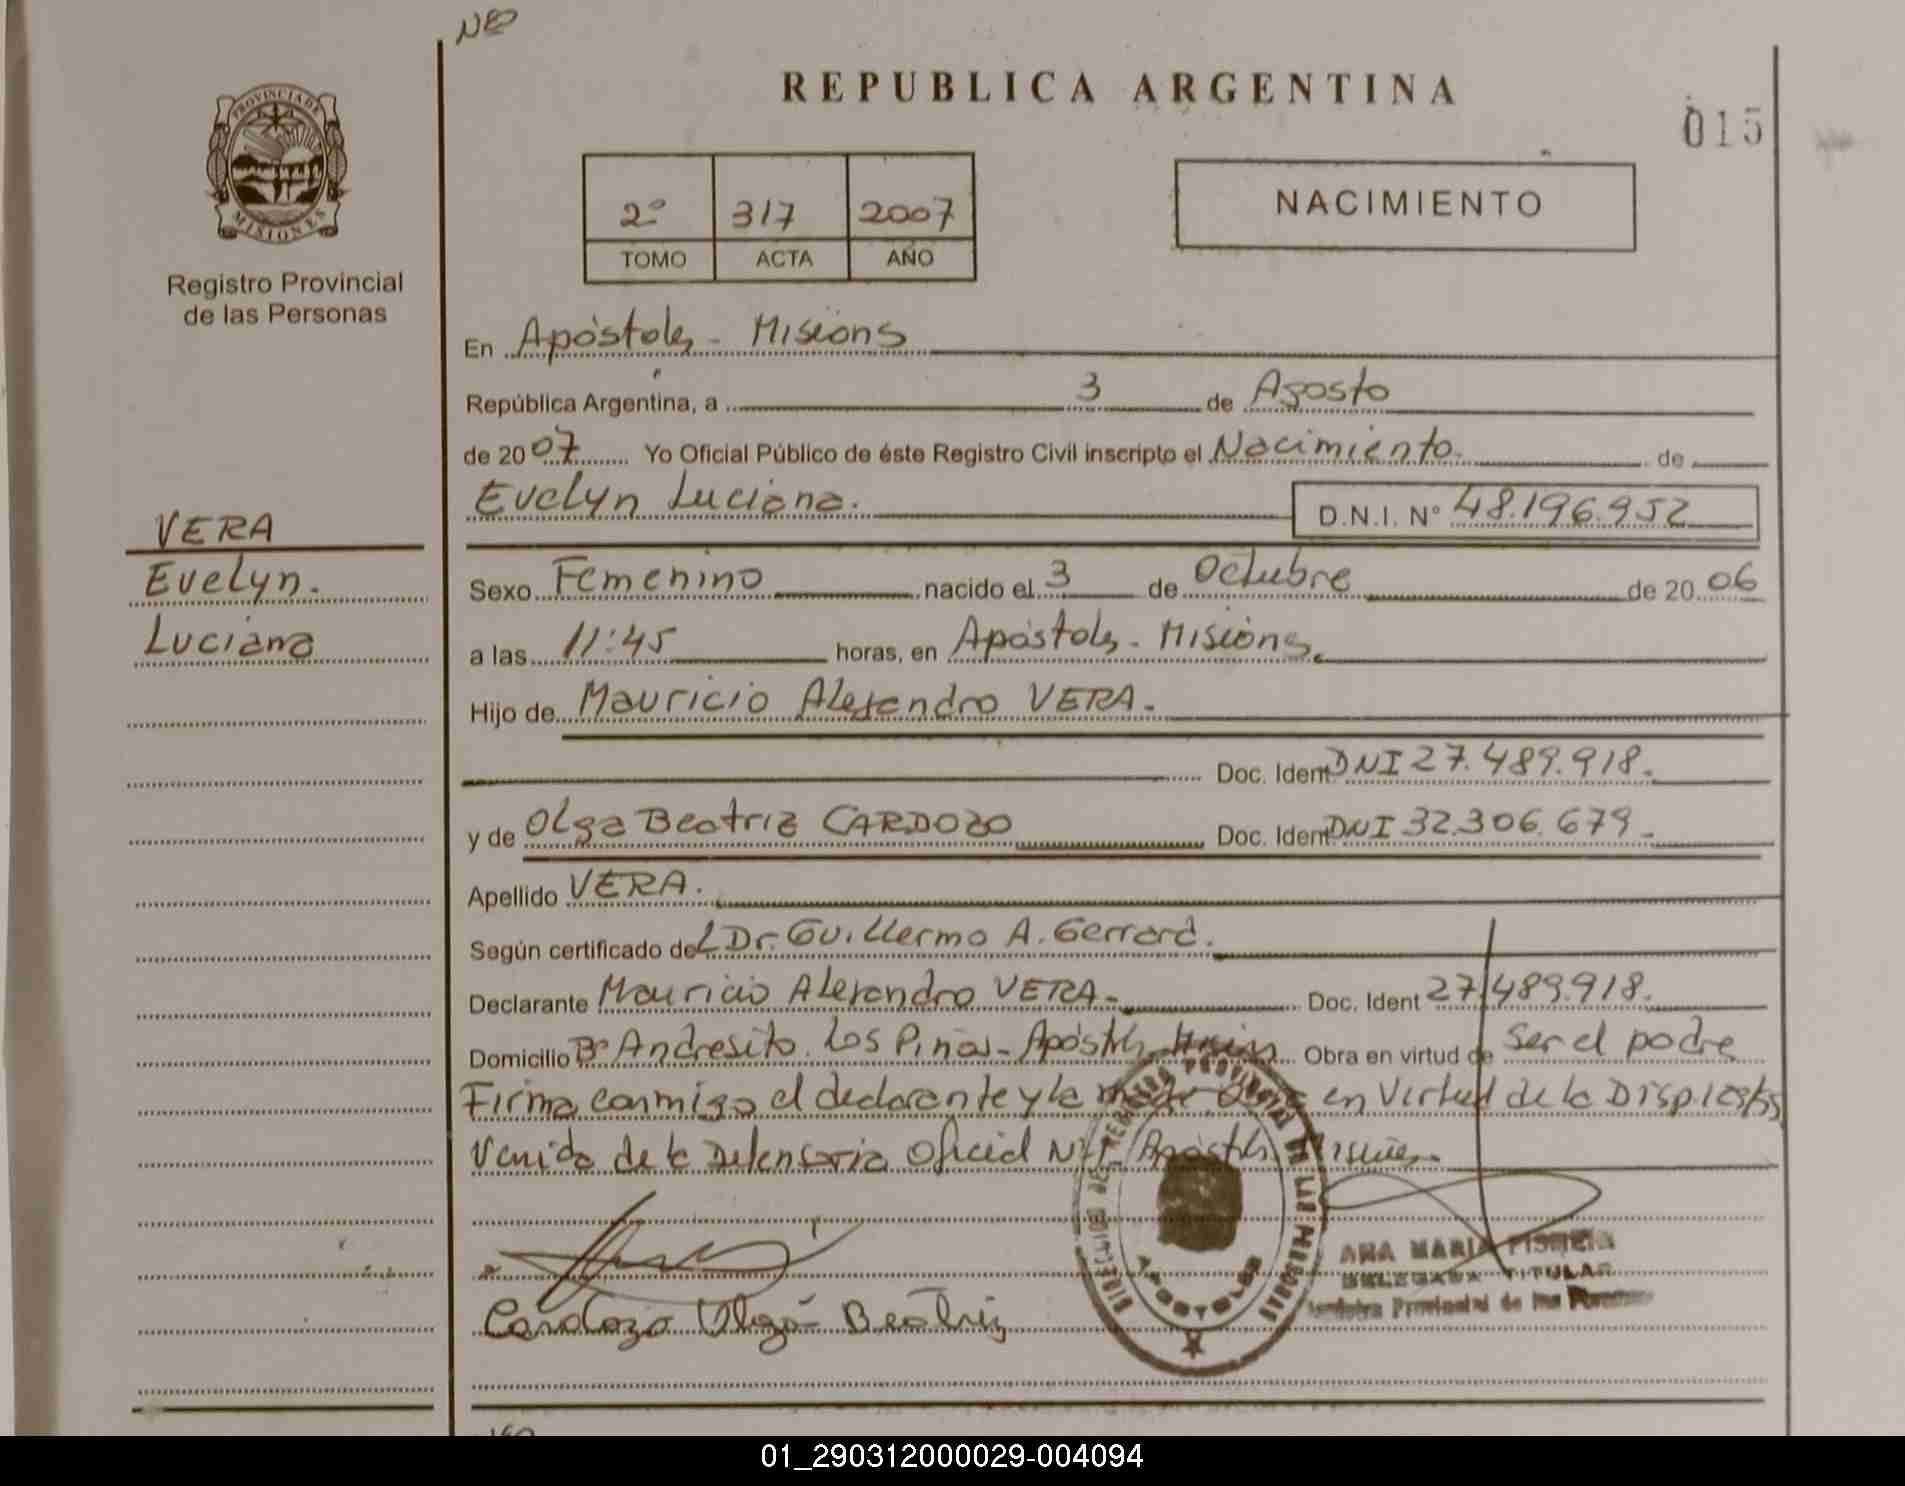 NP
REPUBLICA ARGENTINA
015
PROVINCIA DE
MISIONES
Registro Provincial
de las Personas
2º 317 2007
TOMO ACTA AÑO
NACIMIENTO
En Apóstoles - Misiones
República Argentina, a 3 de Agosto
de 2007 Yo Oficial Público de éste Registro Civil inscripto el Nacimiento de
Evelyn Luciana. D.N.I. Nº 48.196.952
VERA
Evelyn.
Luciana
Sexo Femenino nacido el 3 de Octubre de 2006
a las 11:45 horas, en Apóstoles - Misiones.
Hijo de Mauricio Alejandro VERA.
Doc. Ident DNI 27.489.918.
y de Olga Beatriz CARDOZO Doc. Ident DNI 32.306.679.
Apellido VERA.
Según certificado del Dr. Guillermo A. Gerrard.
Declarante Mauricio Alejandro VERA. Doc. Ident 27.489.918.
Domicilio Bº Andresito. Los Pinos - Apóstoles Obra en virtud de Ser el padre
Firma conmigo el declarante y la madre en Virtud de la Disp.
Venida de la Defensoria Oficial Apóstoles Misiones.
Cardozo Olga Beatriz
APOSTOLES
ANA MARIA
DELEGADA TITULAR
Registro Provincial de las Personas
01_290312000029-004094